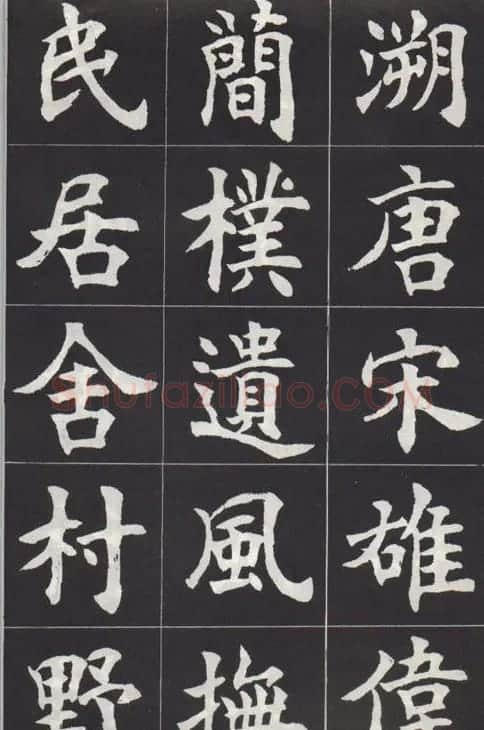 溯唐宋雄偉
簡樸遺風撫
民居舍村野
Shufaziliao.COM